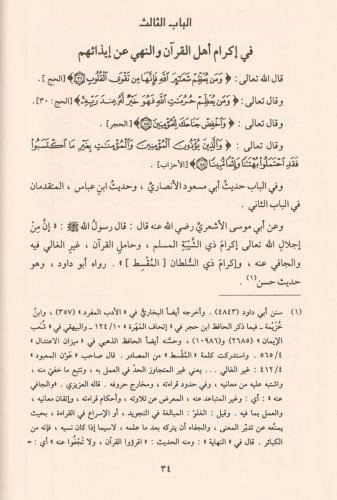 الباب الثالث
في إكرام أهل القرآن والنهي عن إيذائهم
قال الله تعالى : ﴿ وَمَن يُعَظِّمْ شَعَٰٓئِرَ ٱللَّهِ فَإِنَّهَا مِن تَقْوَى ٱلْقُلُوبِ ﴾ [الحج] .
وقال تعالى : ﴿ وَمَن يُعَظِّمْ حُرُمَٰتِ ٱللَّهِ فَهُوَ خَيْرٌ لَّهُۥ عِندَ رَبِّهِۦ ﴾ [الحج : ٣٠] .
وقال تعالى : ﴿ وَٱخْفِضْ جَنَاحَكَ لِلْمُؤْمِنِينَ ﴾ [الحجر] .
وقال تعالى : ﴿ وَٱلَّذِينَ يُؤْذُونَ ٱلْمُؤْمِنِينَ وَٱلْمُؤْمِنَٰتِ بِغَيْرِ مَا ٱكْتَسَبُوا۟
فَقَدِ ٱحْتَمَلُوا۟ بُهْتَٰنًا وَإِثْمًا مُّبِينًا ﴾ [الأحزاب] .
وفي الباب حديث أبي مسعود الأنصاري ، وحديث ابن عباس ، المتقدمان
في الباب الثاني .
وعن أبي موسى الأشعري رضي الله عنه قال : قال رسول الله ﷺ : « إنَّ مِنْ
إجلالِ الله تعالى إكرامَ ذي الشَّيْبَةِ المسلم ، وحاملِ القرآن ، غيرِ الغالي فيه
والجافي عنه ، وإكرامَ ذي السُّلطان [ المُقْسِط ] » . رواه أبو داود ، وهو
حديث حسن(١) .
(١) سنن أبي داود (٤٨٤٣) . وأخرجه أيضاً البخاري في « الأدب المفرد » (٣٥٧) ، وابنُ
خُزَيْمة - فيما ذكر الحافظ ابن حجر في « إتحاف المَهَرة » ١٠/ ١٢٤ - والبيهقي في « شُعَب
الإيمان » (٢٦٨٥) و(١٠٩٨٦) ، وحسَّنه أيضاً الحافظ الذهبي في « ميزان الاعتدال »
٤/ ٥٦٥ . واستدركت كلمة « المُقْسط » من المصادر . قال صاحب « عَوْن المعبود »
٤/ ٤١٢ : غير الغالي ... يعني غير المتجاوز الحدّ في العمل به ، وتتبع ما خفيَ منه ،
واشتبه عليه من معانيه ، وفي حدود قراءته ، ومخارج حروفه . قاله العزيزي . «والجافي
عنه » : أي : وغير المتباعد عنه ، المعرض عن تلاوته ، وأحكام قراءته ، وإتقان معانيه ،
والعمل بما فيه . وقيل : الغلوّ : المبالغة في التجويد ، أو الإسراع في القراءة ، بحيث
يمنعُه عن تدبّر المعنى ، والجفاء أن يتركه بعد ما علمه ، لاسيما إذا كان نسيه ، فإنه من
الكبائر . قال في « النهاية » : ومنه الحديث : « اقرؤوا القرآن ، ولا تَجْفُوا عنه » أي : =
٣٤